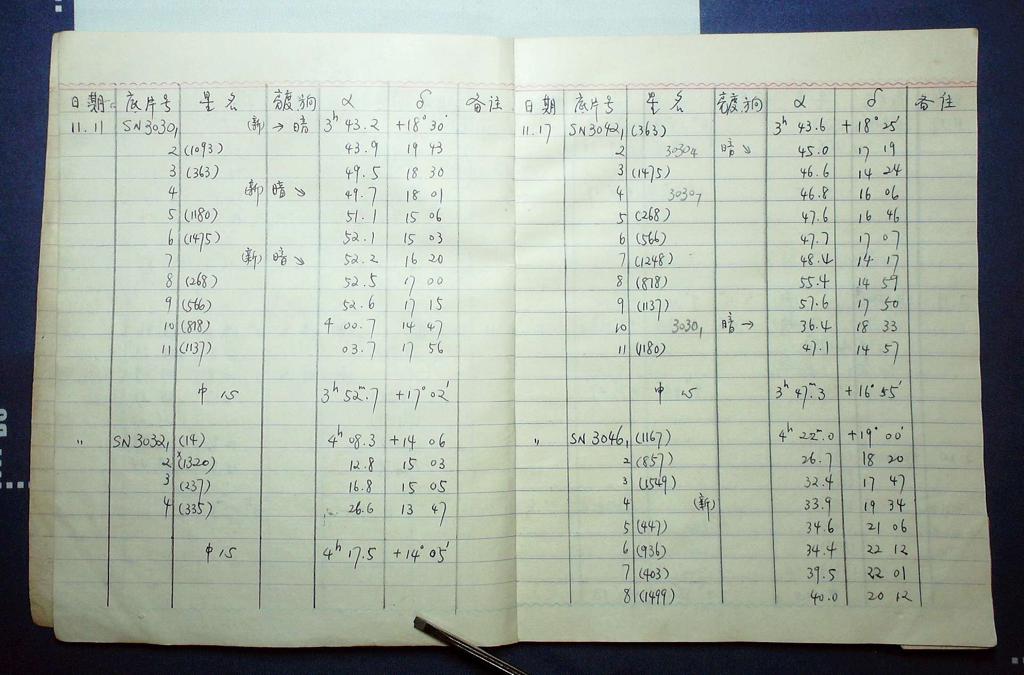 日期 底片号 星名 亮度 α δ 备注
11.11 SN3030₁ (新) → 暗 3ʰ 43.2 +18° 30′
2 (1093) 43.9 19 43
3 (363) 49.5 18 30
4 (新) 暗 ↘ 49.7 18 01
5 (1180) 51.1 15 06
6 (1475) 52.1 15 03
7 (新) 暗 ↘ 52.2 16 20
8 (268) 52.5 17 00
9 (566) 52.6 17 15
10 (878) 4 00.7 14 47
11 (1137) 03.7 17 56
中心 3ʰ 52ᵐ.7 +17° 02′
〃 SN3032₁ (14) 4ʰ 08.3 +14 06
2 ˣ(1320) 12.8 15 03
3 (237) 16.8 15 05
4 (335) 26.6 13 47
中心 4ʰ 17.5 +14° 05′
日期 底片号 星名 亮度 α δ 备注
11.17 SN3042₁ (363) 3ʰ 43.6 +18° 25′
2 3030₄ 暗 ↘ 45.0 17 19
3 (1475) 46.6 14 24
4 3030₇ 46.8 16 06
5 (268) 47.6 16 46
6 (566) 47.7 17 07
7 (1248) 48.4 14 17
8 (878) 55.4 14 59
9 (1137) 57.6 17 50
10 3030₁ 暗 → 36.4 18 33
11 (1180) 47.1 14 57
中心 3ʰ 47ᵐ.3 +16° 55′
〃 SN3046₁ (1167) 4ʰ 22ᵐ.0 +19° 00′
2 (857) 26.7 18 20
3 (1549) 32.4 17 47
4 (新) 33.9 19 34
5 (447) 34.6 21 06
6 (936) 34.4 22 12
7 (403) 39.5 22 01
8 (1499) 40.0 20 12